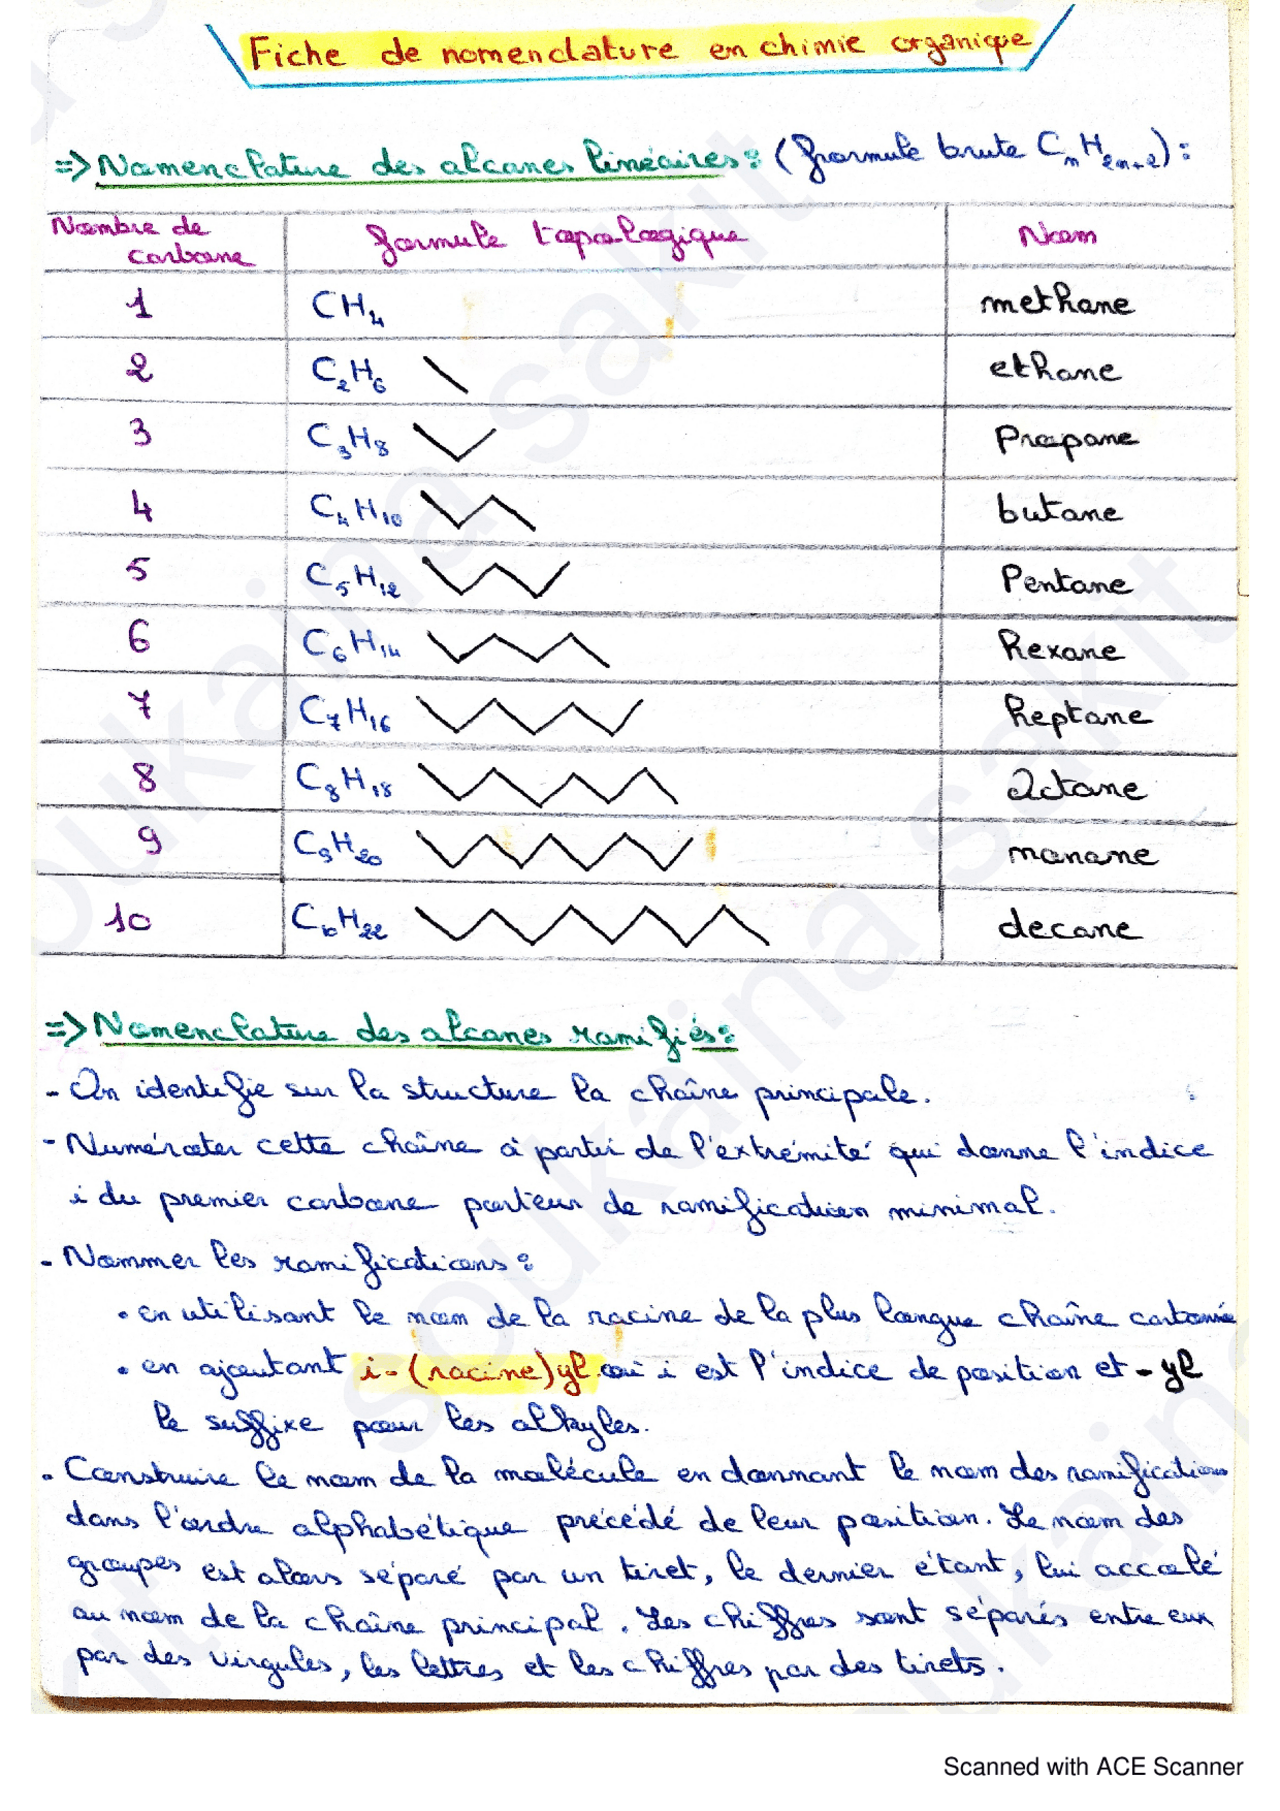 Fiche de nomenclature en chimie organique
=> Nomenclature des alcanes linéaires : (formule brute CnH2n+2) :
Nombre de carbone | formule topologique | Nom
1 | CH4 | methane
2 | C2H6 | ethane
3 | C3H8 | Propane
4 | C4H10 | butane
5 | C5H12 | Pentane
6 | C6H14 | hexane
7 | C7H16 | heptane
8 | C8H18 | Octane
9 | C9H20 | nonane
10 | C10H22 | decane
=> Nomenclature des alcanes ramifiés :
- On identifie sur la structure la chaîne principale.
- Numéroter cette chaîne à partir de l'extrémité qui donne l'indice
i du premier carbone porteur de ramification minimal.
- Nommer les ramifications :
• en utilisant le nom de la racine de la plus longue chaîne carbonée
• en ajoutant i-(racine)yl où i est l'indice de position et -yl
le suffixe pour les alkyles.
- Construire le nom de la molécule en donnant le nom des ramifications
dans l'ordre alphabétique précédé de leur position. Le nom des
groupes est alors séparé par un tiret, le dernier étant, lui accolé
au nom de la chaîne principal. Les chiffres sont séparés entre eux
par des virgules, les lettres et les chiffres par des tirets.
soukaina sakit
Scanned with ACE Scanner